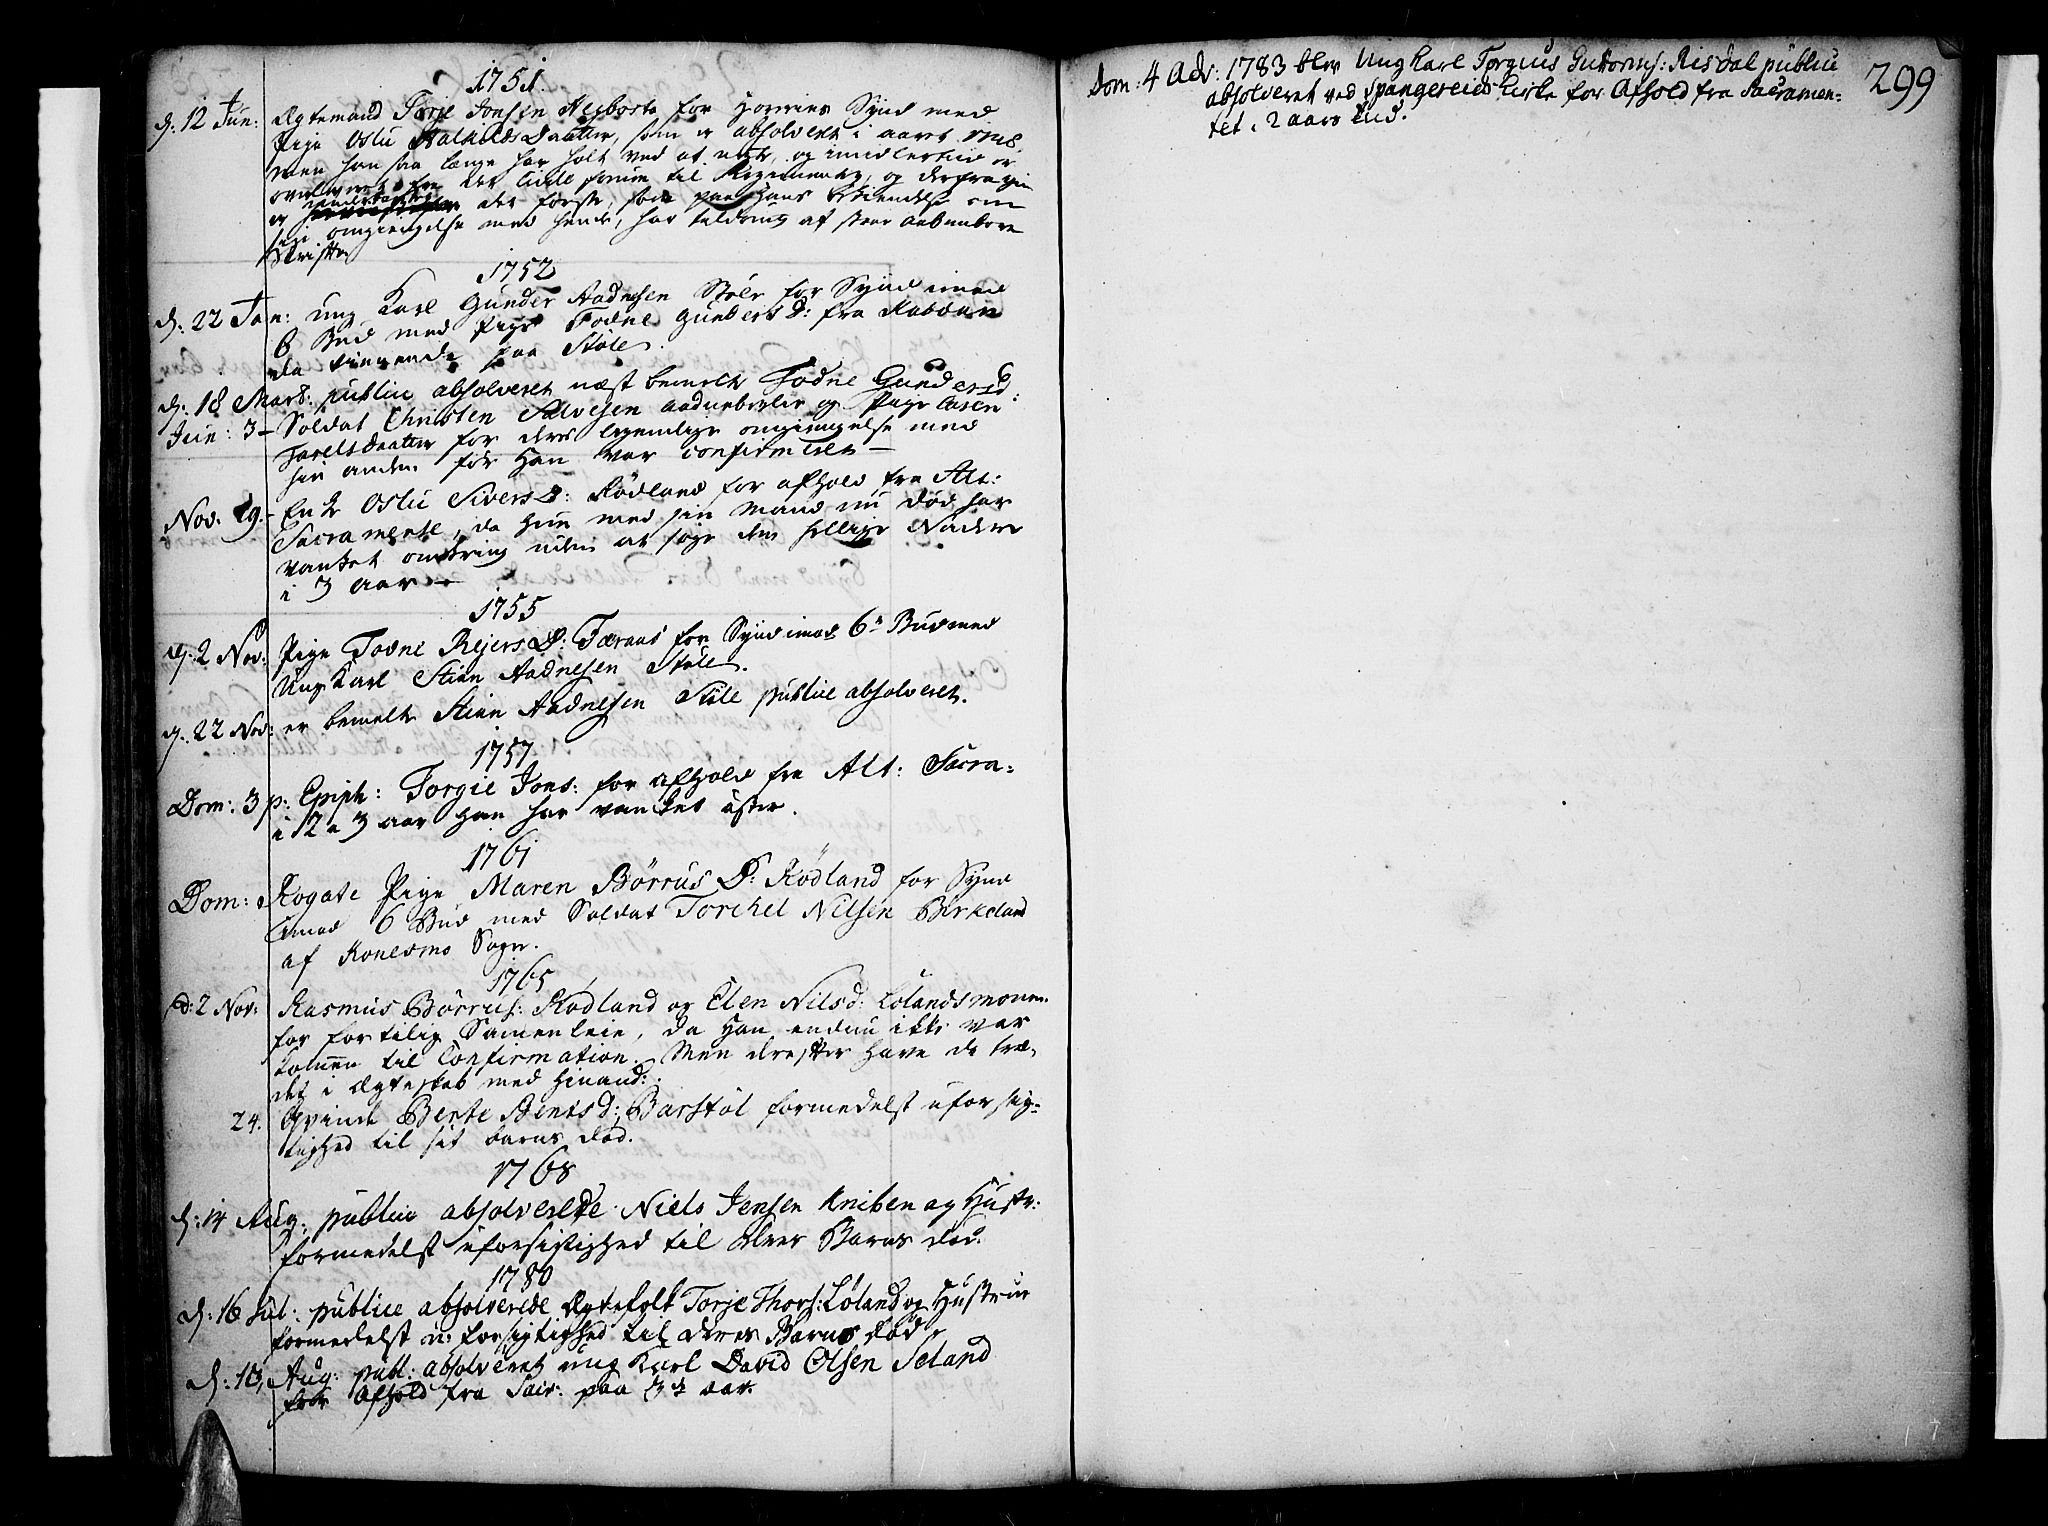 1751.
d: 12 Jun: Ægtemand Torje Jonsen Heiborte for Horries Synd med
Pige Oslu Stalkelds Daatter, som er absolveret i aaret
men han saa længe har holt ved at negte, og imidlertid er
overlevert fra det Civile forum til Regimentet, og derfra
og det første, som paa Hans bekiendelse om
sin omgiengelse med hende, har
Skrifte
1752
d: 22 Jan: ung Karl Gunder Aadnesen Støle for Synd imod
6 Bud med Pige Todne Gunders D: fra
da tienende paa Støle.
d: 18 Mart: publice absolveret næst bemelte Todne Gundersd:
Jun: 3 – Soldat Christen Salvesen og Pige
Taralsdaatter for deres legemlige omgiengelse med
hin anden før Han var confirmeret –
Nov. 19. – Enke Oslu Sivers D: Rødland for afhold fra Alt:
Sacramente, da Hun med sin Mand nu død har
vanket omkring uden at søge den hellige Nadere
i 3 aar –
1755
d: 2 Nov: Pige Todne Rejers D: Taraas for Synd imod 6te Bud med
Ung Karl Stien Aadnesen Støle.
d: 22 Nov: er bemelte Stien Aadnesen Støle publice absolveret.
1757
Dom: 3 p: Epiph: Torgie Jons: for afhold fra Alt: Sacra=
i 2 a 3 aar han har vanket
1761
Dom: Rogate Pige Maren Børrus D: Rødland for Synd
imod 6 Bud med Soldat Torchel Nilsen Birkeland
af Konesmo Sogn.
1765
d: 2 Nov: Rasmus Børrus: Rødland og Elen Nilsd: Lølandsmonen
for fortilig Samenleie, da Han endnu ikke var
kom̄en til Confirmation. Men derefter have de træ=
det i Ægteskab med hinand:
24. Qvinde Berte Aentsd: Barstøl formedelst uforsig=
tighed til sit barns død.
1768
d: 14 Aug: publice absolverede Niels Jensen Kniben og Hustr:
formedelst uforsigtighed til deres Barns død.
1780
d: 16 Jul: publice absolverede Ægtefolk Torje Thors: Løland og Hustrue
formedelst u: forsigtighed til deres Barns død.
d: 13, Aug: publ: absolveret ung Karl David Olsen Seland
for Afhold fra Sacr: paa 3de aar.
Dom: 4 Adv: 1783 blev Ung Karl Torgius Guttorms: Risdal publice
absolveret ved Spangereids Kirke for Afhold fra Sacramen=
tet i 2 aars tid.
299